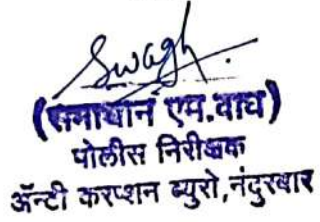 Swagh.
(समाधान एम.वाघ)
पोलीस निरीक्षक
ॲन्टी करप्शन ब्युरो,नंदुरबार